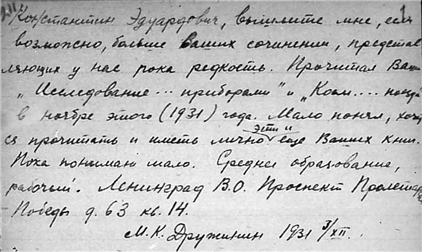 Константин Эдуардович, вышлите мне, если
возможно, больше ваших сочинений, представ
ляющих у нас пока редкость. Прочитал Ваши
„Исследование... приборами" и „Косм.... поезда"
в ноябре этого (1931) года. Мало понял, хочет
ся прочитать и иметь лично эти и еще Ваших книг.
Пока понимаю мало. Среднее образование,
рабочий. Ленинград В.О. Проспект Пролетар
Победы д. 63 кв. 14.
М.К. Дружинин 1931 3/XII